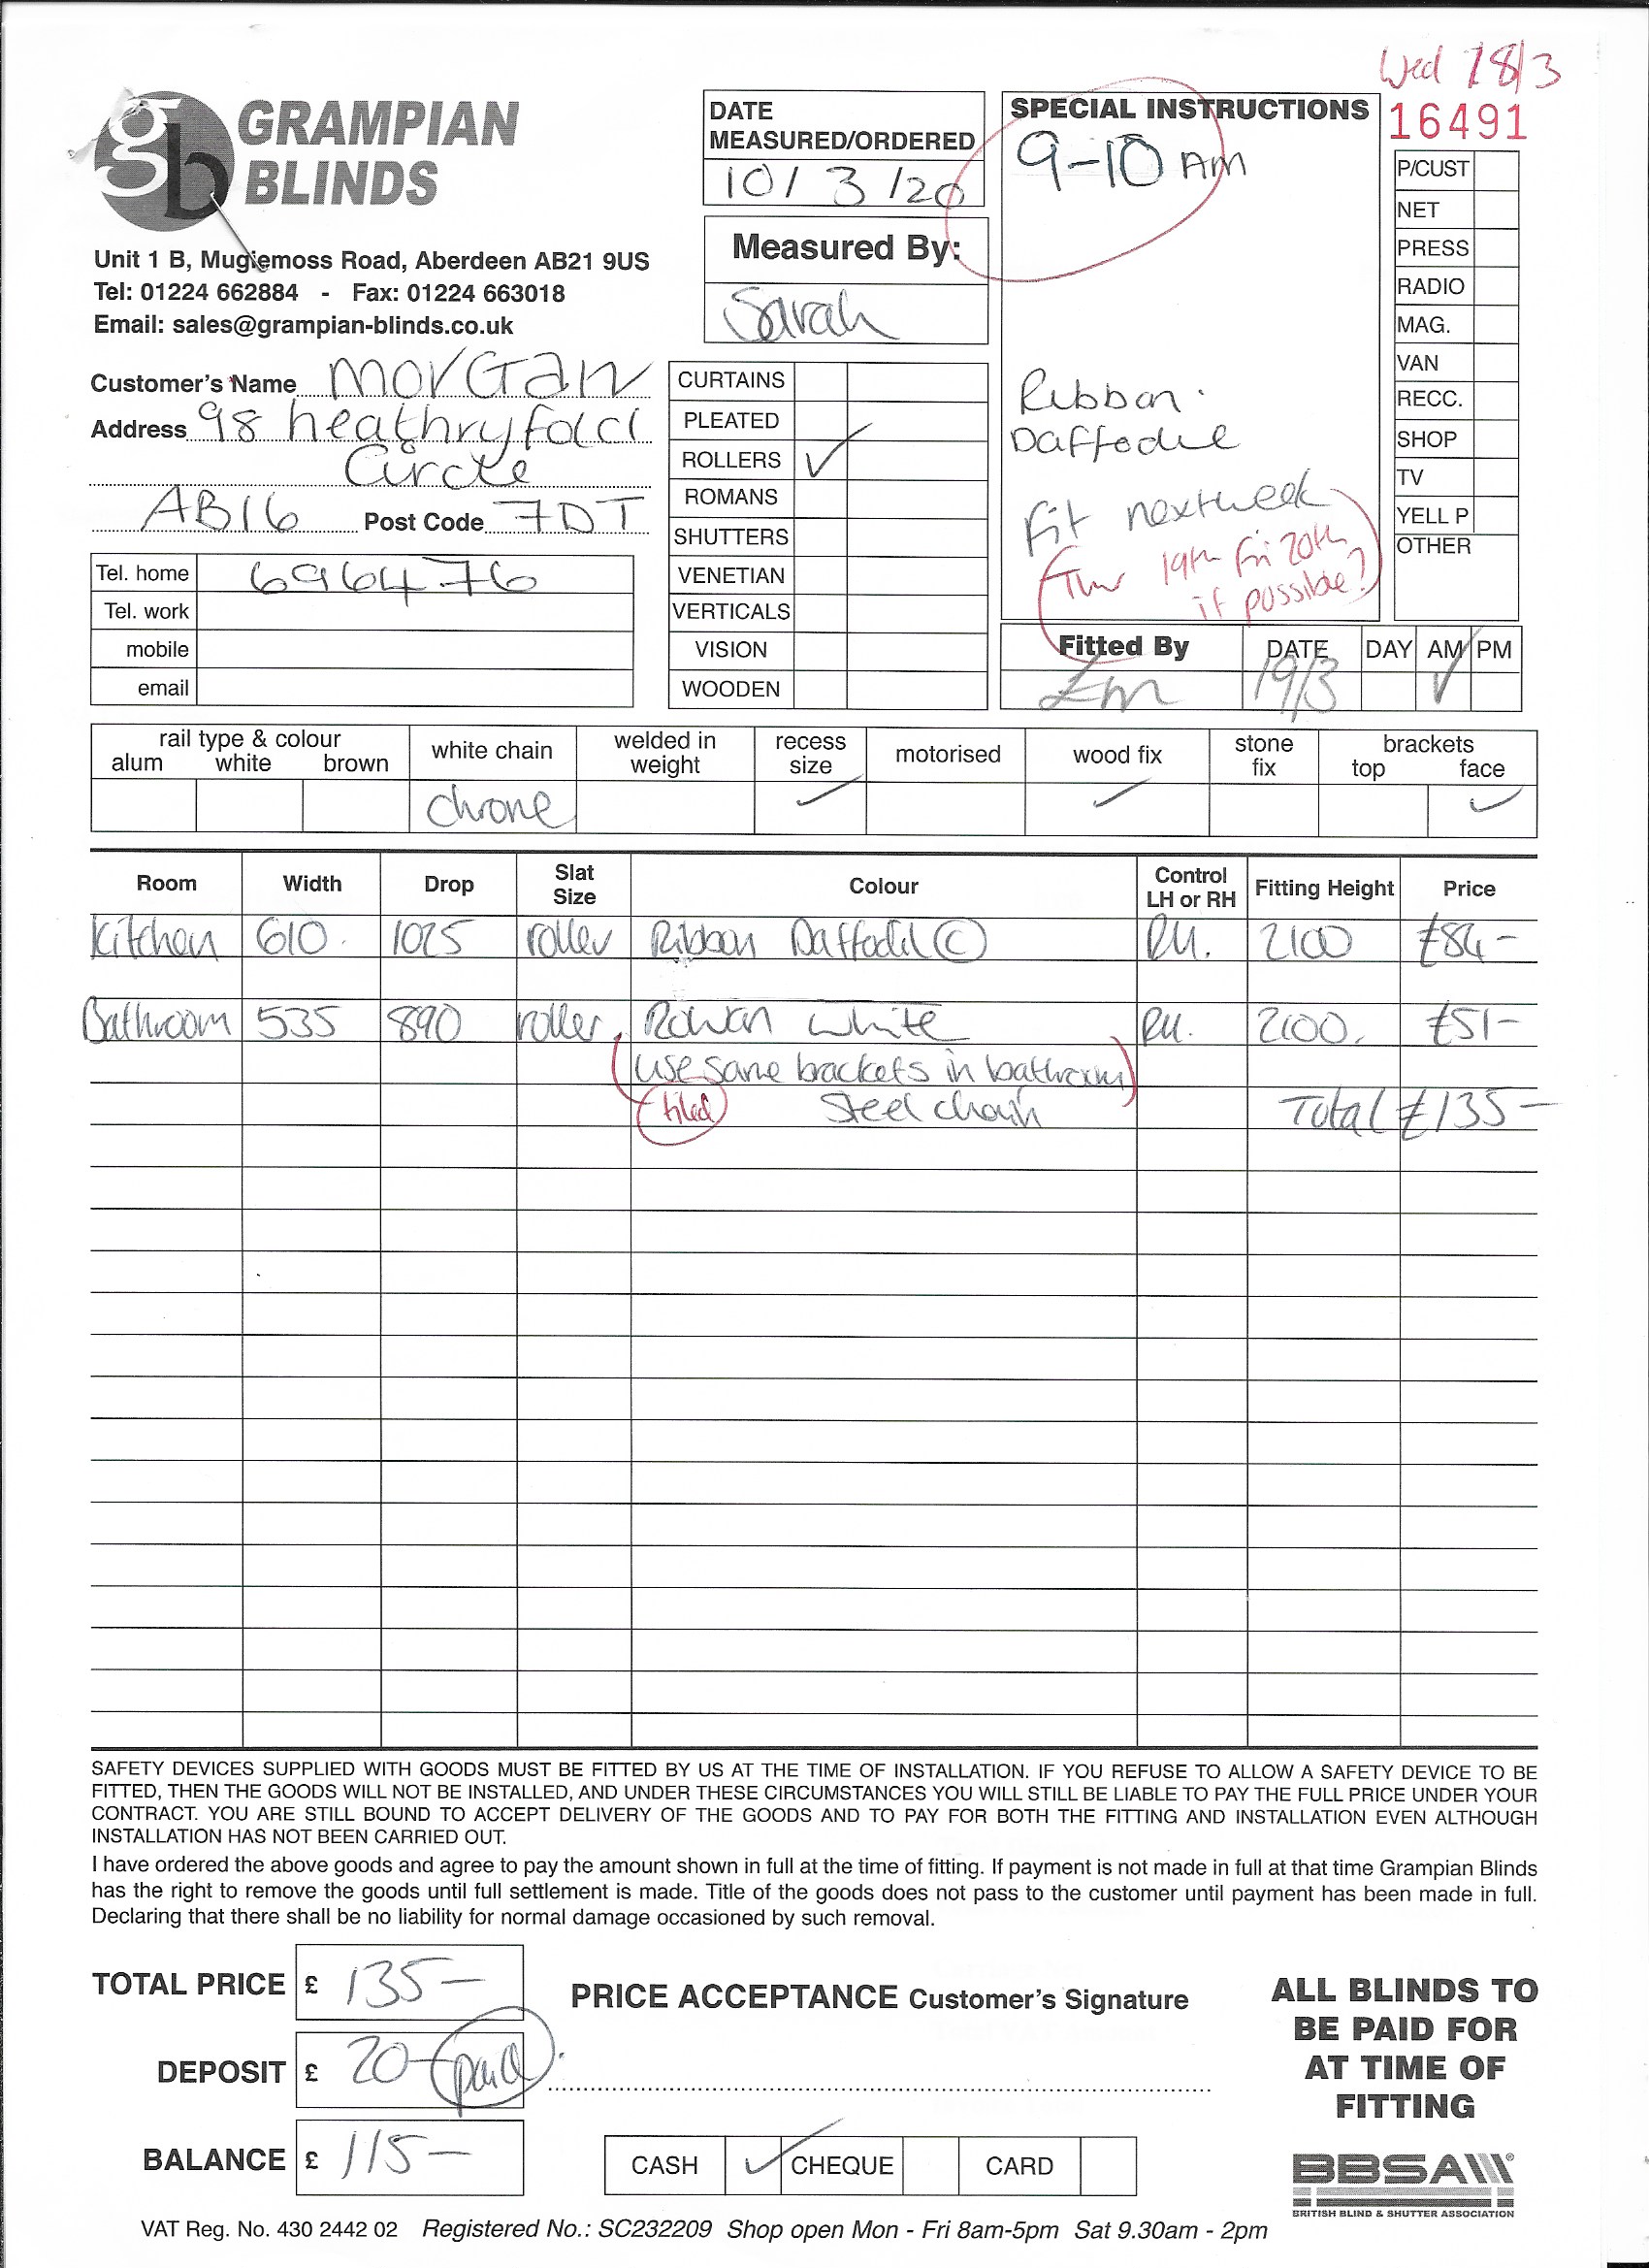 Wed 18/3
GRAMPIAN
BLINDS
Unit 1 B, Mugiemoss Road, Aberdeen AB21 9US
Tel: 01224 662884 - Fax: 01224 663018
Email: sales@grampian-blinds.co.uk
DATE
MEASURED/ORDERED
10/3/20
Measured By:
Sarah
SPECIAL INSTRUCTIONS
9-10 AM
Ribbon.
Daffodil
Fit next week
Thur 19th Fri 20th
if possible?
16491
P/CUST
NET
PRESS
RADIO
MAG.
VAN
RECC.
SHOP
TV
YELL P
OTHER
Customer's Name Morgan
Address 98 heathryfold
Circle
AB16 Post Code 7DT
Tel. home 696476
Tel. work
mobile
email
CURTAINS
PLEATED
ROLLERS ✓
ROMANS
SHUTTERS
VENETIAN
VERTICALS
VISION
WOODEN
Fitted By DATE DAY AM PM
19/3 ✓
rail type & colour
alum white brown
white chain
welded in
weight
recess
size
motorised
wood fix
stone
fix
brackets
top face
chrome ✓ ✓ ✓
Room Width Drop Slat Size Colour Control LH or RH Fitting Height Price
Kitchen 610. 1025 roller Ribbon Daffodil © RH. 2100 £84-
Bathroom 535 890 roller Rowan White RH. 2100. £51-
(use same brackets in bathroom)
tiled Steel chain Total £135-
SAFETY DEVICES SUPPLIED WITH GOODS MUST BE FITTED BY US AT THE TIME OF INSTALLATION. IF YOU REFUSE TO ALLOW A SAFETY DEVICE TO BE
FITTED, THEN THE GOODS WILL NOT BE INSTALLED, AND UNDER THESE CIRCUMSTANCES YOU WILL STILL BE LIABLE TO PAY THE FULL PRICE UNDER YOUR
CONTRACT. YOU ARE STILL BOUND TO ACCEPT DELIVERY OF THE GOODS AND TO PAY FOR BOTH THE FITTING AND INSTALLATION EVEN ALTHOUGH
INSTALLATION HAS NOT BEEN CARRIED OUT.
I have ordered the above goods and agree to pay the amount shown in full at the time of fitting. If payment is not made in full at that time Grampian Blinds
has the right to remove the goods until full settlement is made. Title of the goods does not pass to the customer until payment has been made in full.
Declaring that there shall be no liability for normal damage occasioned by such removal.
TOTAL PRICE £ 135-
DEPOSIT £ 20- paid
BALANCE £ 115-
PRICE ACCEPTANCE Customer's Signature
CASH ✓ CHEQUE CARD
ALL BLINDS TO
BE PAID FOR
AT TIME OF
FITTING
BBSA
BRITISH BLIND & SHUTTER ASSOCIATION
VAT Reg. No. 430 2442 02 Registered No.: SC232209 Shop open Mon - Fri 8am-5pm Sat 9.30am - 2pm